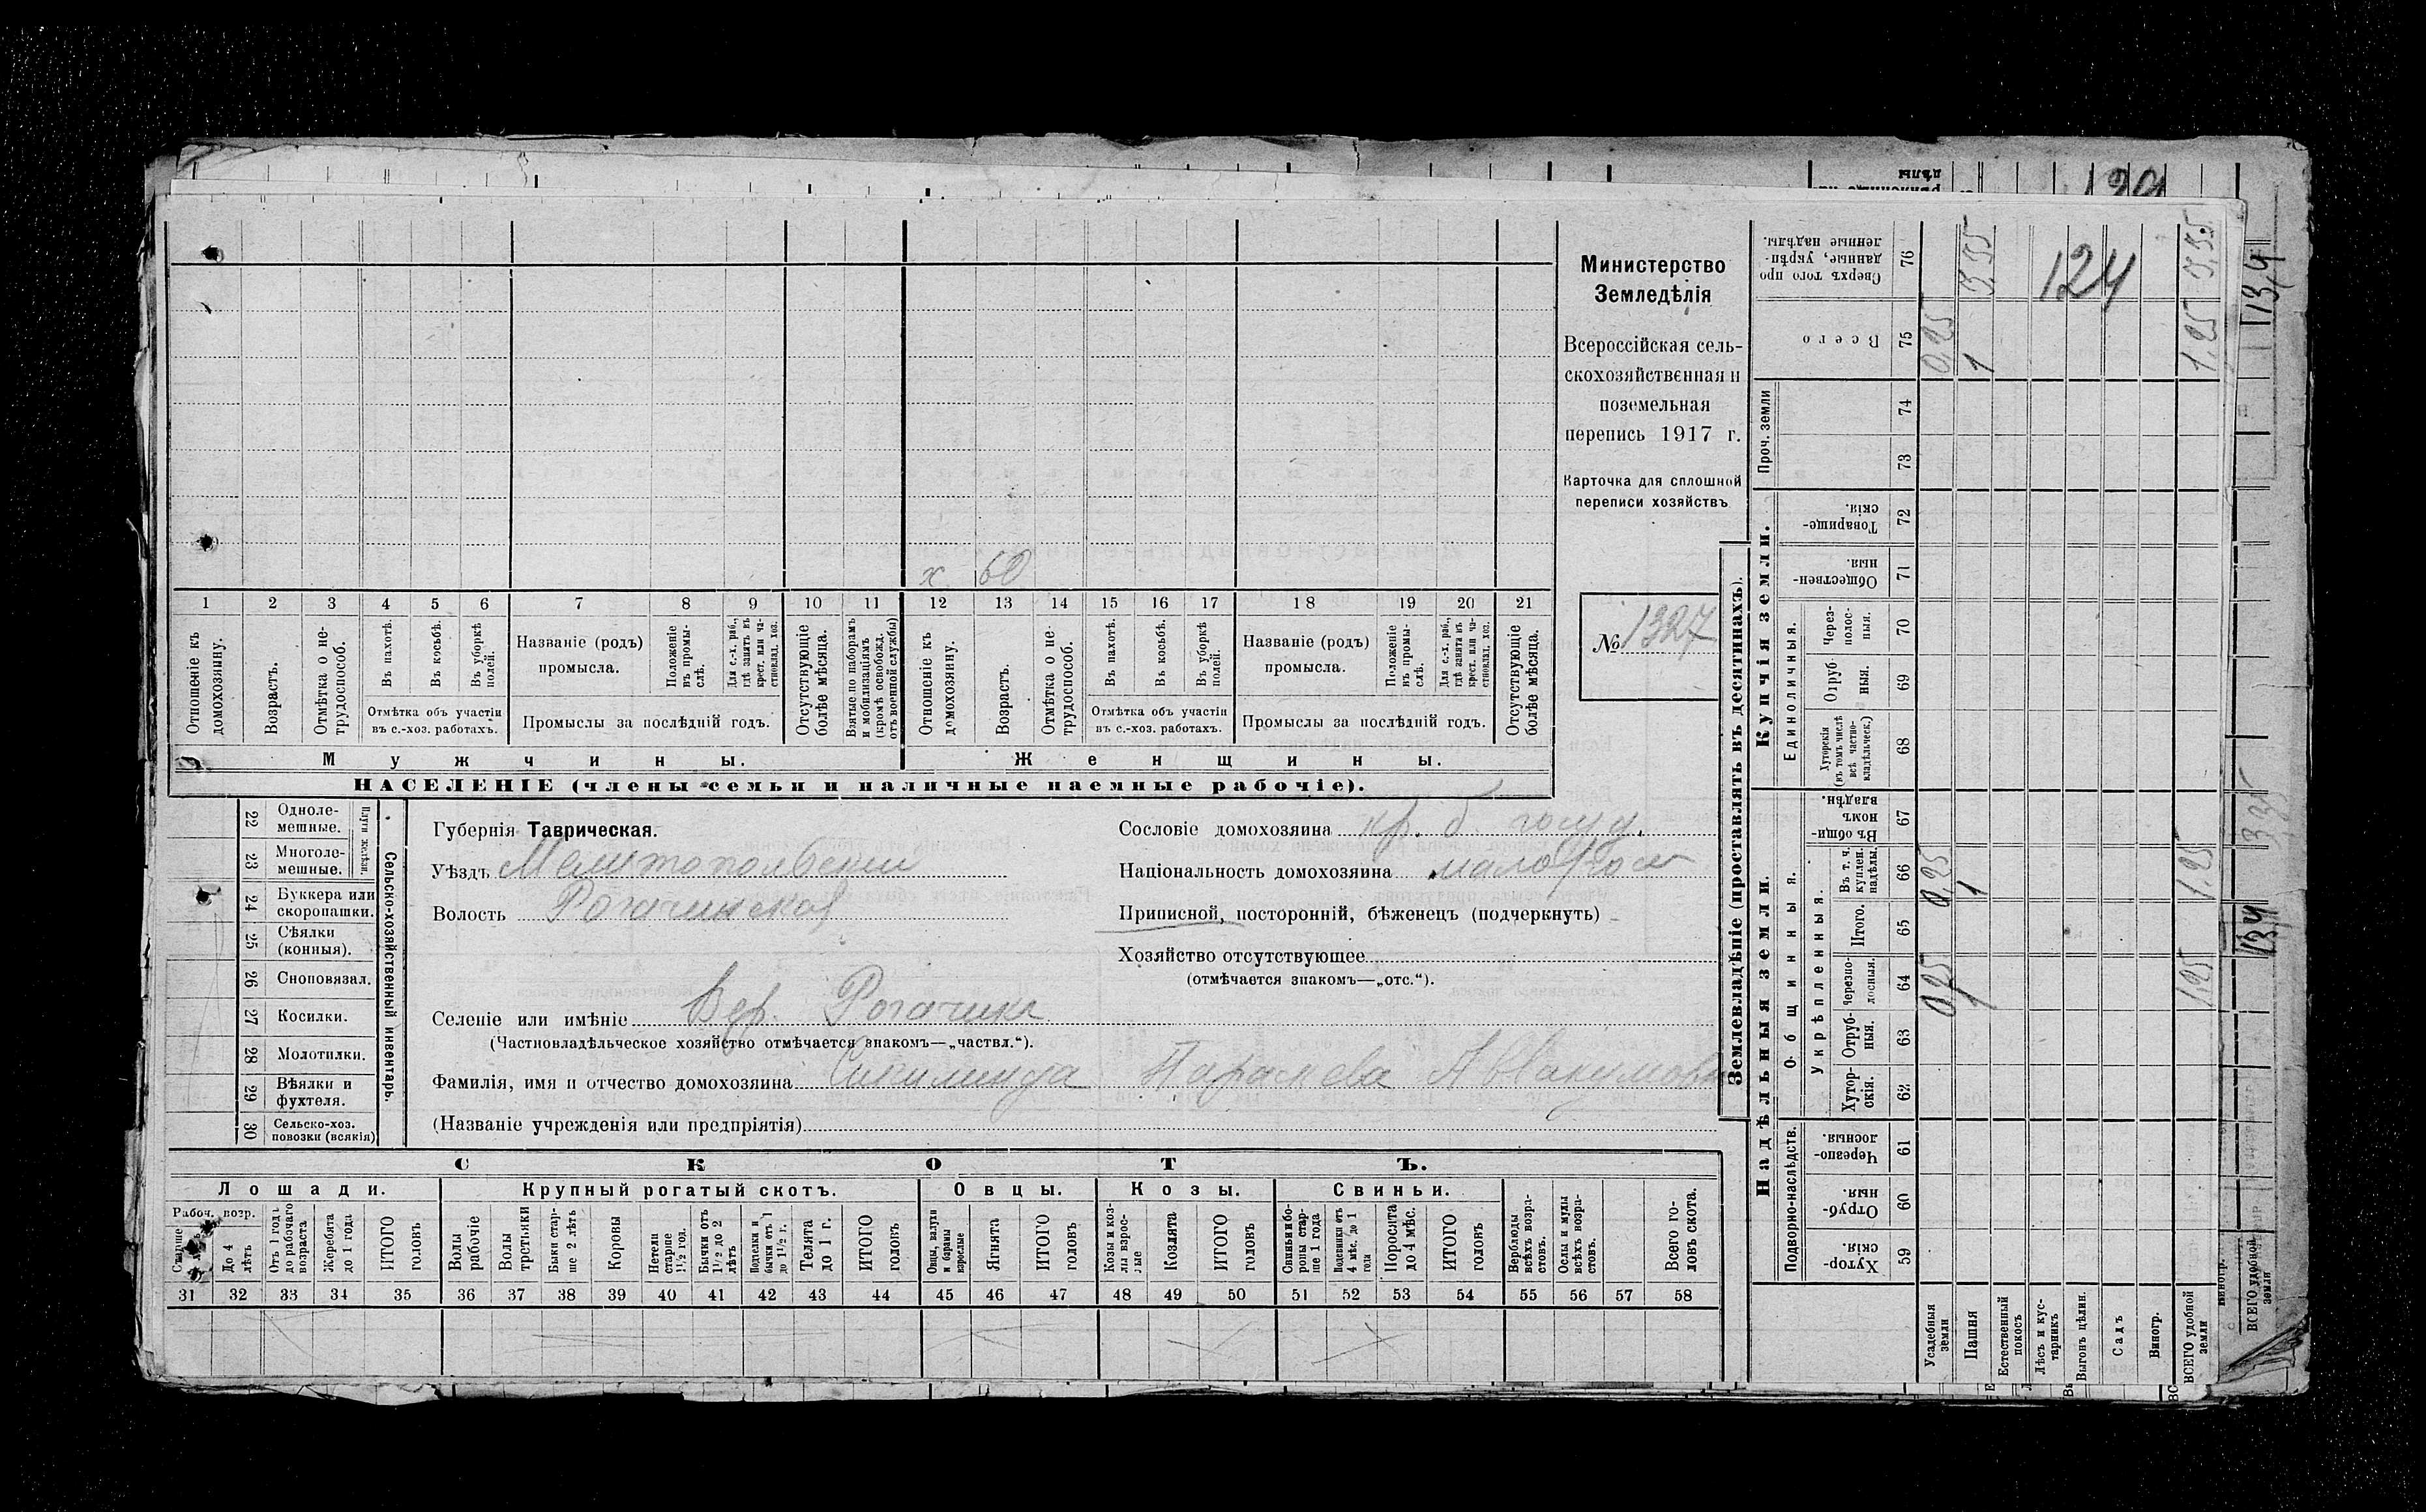 Министерство
Земледѣлія
Всероссійская сель-
скохозяйственная и
поземельная
перепись 1917 г.
Карточка для сплошной
переписи хозяйствъ
№ 1327
х 60
1 2 3 4 5 6 7 8 9 10 11 12 13 14 15 16 17 18 19 20 21
Отношеніе къ домохозяину.
Возрастъ.
Отмѣтка о не-трудоспособ.
Въ пахотѣ.
Въ косьбѣ.
Въ уборкѣ полей.
Отмѣтка объ участіи
въ с.-хоз. работахъ.
Названіе (родъ)
промысла.
Положеніе въ промы-слѣ.
Для с.-х. раб., гдѣ занятъ въ крест. или ча-стновлад. хоз.
Промыслы за послѣдній годъ.
Отсутствующіе болѣе мѣсяца.
Взятые по наборамъ и мобилизаціямъ (кромѣ освобожд. отъ военной службы)
Отношеніе къ домохозяину.
Возрастъ.
Отмѣтка о не-трудоспособ.
Въ пахотѣ.
Въ косьбѣ.
Въ уборкѣ полей.
Отмѣтка объ участіи
въ с.-хоз. работахъ.
Названіе (родъ)
промысла.
Положеніе въ промы-слѣ.
Для с.-х. раб., гдѣ занята въ крест. или ча-стновлад. хоз.
Промыслы за послѣдній годъ.
Отсутствующіе болѣе мѣсяца.
Мужчины.
Женщины.
НАСЕЛЕНІЕ (члены семьи и наличные наемные рабочіе).
22 Одноле-мешные.
23 Многоле-мешные.
Плуги желѣзн.
24 Буккера или скоропашки.
25 Сѣялки (конныя).
26 Сноповязал.
27 Косилки.
28 Молотилки.
29 Вѣялки и фухтеля.
30 Сельско-хоз. повозки (всякія)
Сельско-хозяйственный инвентарь.
Губернія Таврическая.
Уѣздъ Мелитопольскій
Волость Рогачинская
Сословіе домохозяина кр. б. госуд.
Національность домохозяина малоросс
Приписной, посторонній, бѣженецъ (подчеркнуть)
Хозяйство отсутствующее
(отмѣчается знакомъ—„отс.“).
Селеніе или имѣніе Вер. Рогачикъ
(Частновладѣльческое хозяйство отмѣчается знакомъ—„частвл.“).
Фамилія, имя и отчество домохозяина
(Названіе учрежденія или предпріятія)
СКОТЪ.
Лошади.
Крупный рогатый скотъ.
Овцы.
Козы.
Свиньи.
Рабоч. возр.
Старше
До 4 лѣтъ
Отъ 1 года до рабочаго возраста
Жеребята до 1 года
ИТОГО
Волы рабочіе
Волы третьяки
Быки стар-ше 2 лѣтъ
Коровы
Нетели старше 1½ год.
Бычки отъ 1½ до 2 лѣтъ
Подтелки и бычки отъ 1 до 1½ г.
Телята до 1 г.
ИТОГО головъ
Овцы, валухи и бараны взрослые
Ягнята
ИТОГО головъ
Козы и коз-лы взрос-лые
Козлята
ИТОГО головъ
Свиньи и бо-ровы стар-ше 1 года
Подсвинки отъ 4 мѣс. до 1 года
Поросята до 4 мѣс.
ИТОГО головъ
Верблюды всѣхъ возра-стовъ.
Ослы и мулы всѣхъ возра-стовъ.
Всего го-ловъ скота.
31 32 33 34 35 36 37 38 39 40 41 42 43 44 45 46 47 48 49 50 51 52 53 54 55 56 57 58
Землевладѣніе (проставлять въ десятинахъ).
Купчія земли.
Надѣльныя земли.
Сверхъ того про данные, укрѣп-ленные надѣлы. 76
Всего 75
Проч. земли 74 73
Товарище-скія. 72
Обществен-ныя. 71
Единоличныя.
Через-полос-ныя. 70
Отруб-ныя. 69
Хуторскія (въ томъ числѣ всѣ частно-владѣльческ.) 68
Въ общи-номъ владѣн. 67
Общинныя.
Укрѣпленныя.
Въ т. ч. куплен. надѣлы. 66
Итого. 65
Черезпо-лосныя. 64
Отруб-ныя. 63
Хутор-скія. 62
Подворно-наслѣдств.
Черезпо-лосныя. 61
Отруб-ныя. 60
Хутор-скія. 59
Усадебныя земли
Пашня
Естественный покосъ
Лѣсъ и кус-тарникъ
Выгонъ цѣлин.
Садъ
Виногр.
ВСЕГО удобной земли
124
0,25
1
1,25
0,25
1
1,25
1,25
ВСЕГО удобной земли